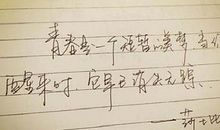 青春是一个短暂的美梦，当你
醒来时，它早已消失无踪
——莎士比